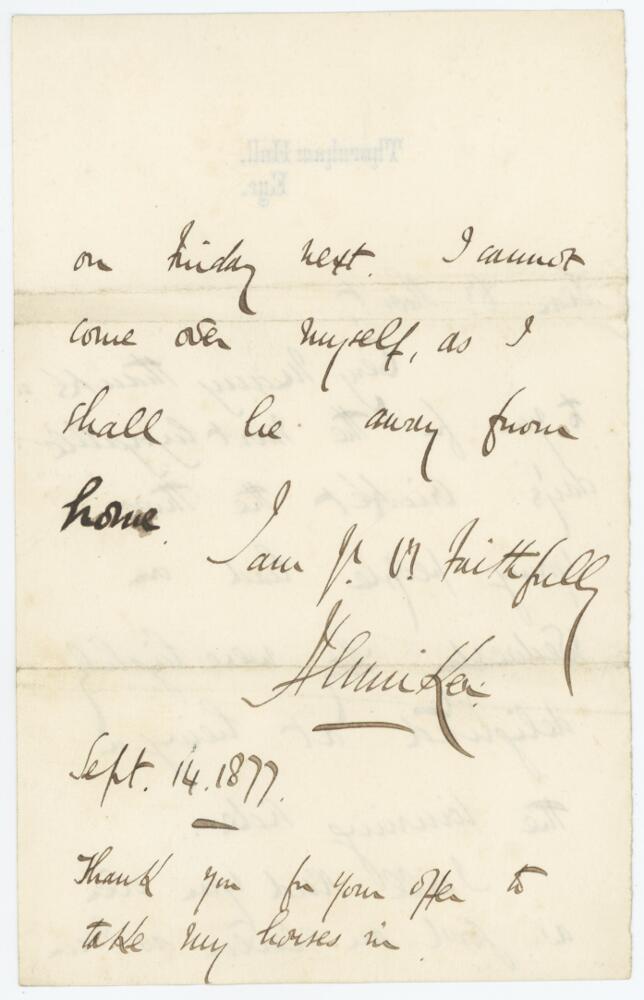 Thornham Hall.
Eye.
on Friday next. I cannot
come over myself, as I
shall be away from
home.
I am Yr. Vy. Faithfully
Henniker
Sept. 14. 1877.
Thank you for your offer to
take my horses in